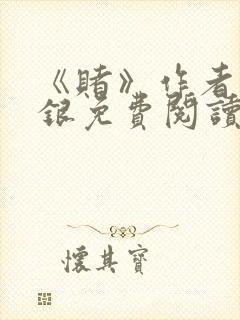 《賭》作者
銀免費閱讀
懷其寶